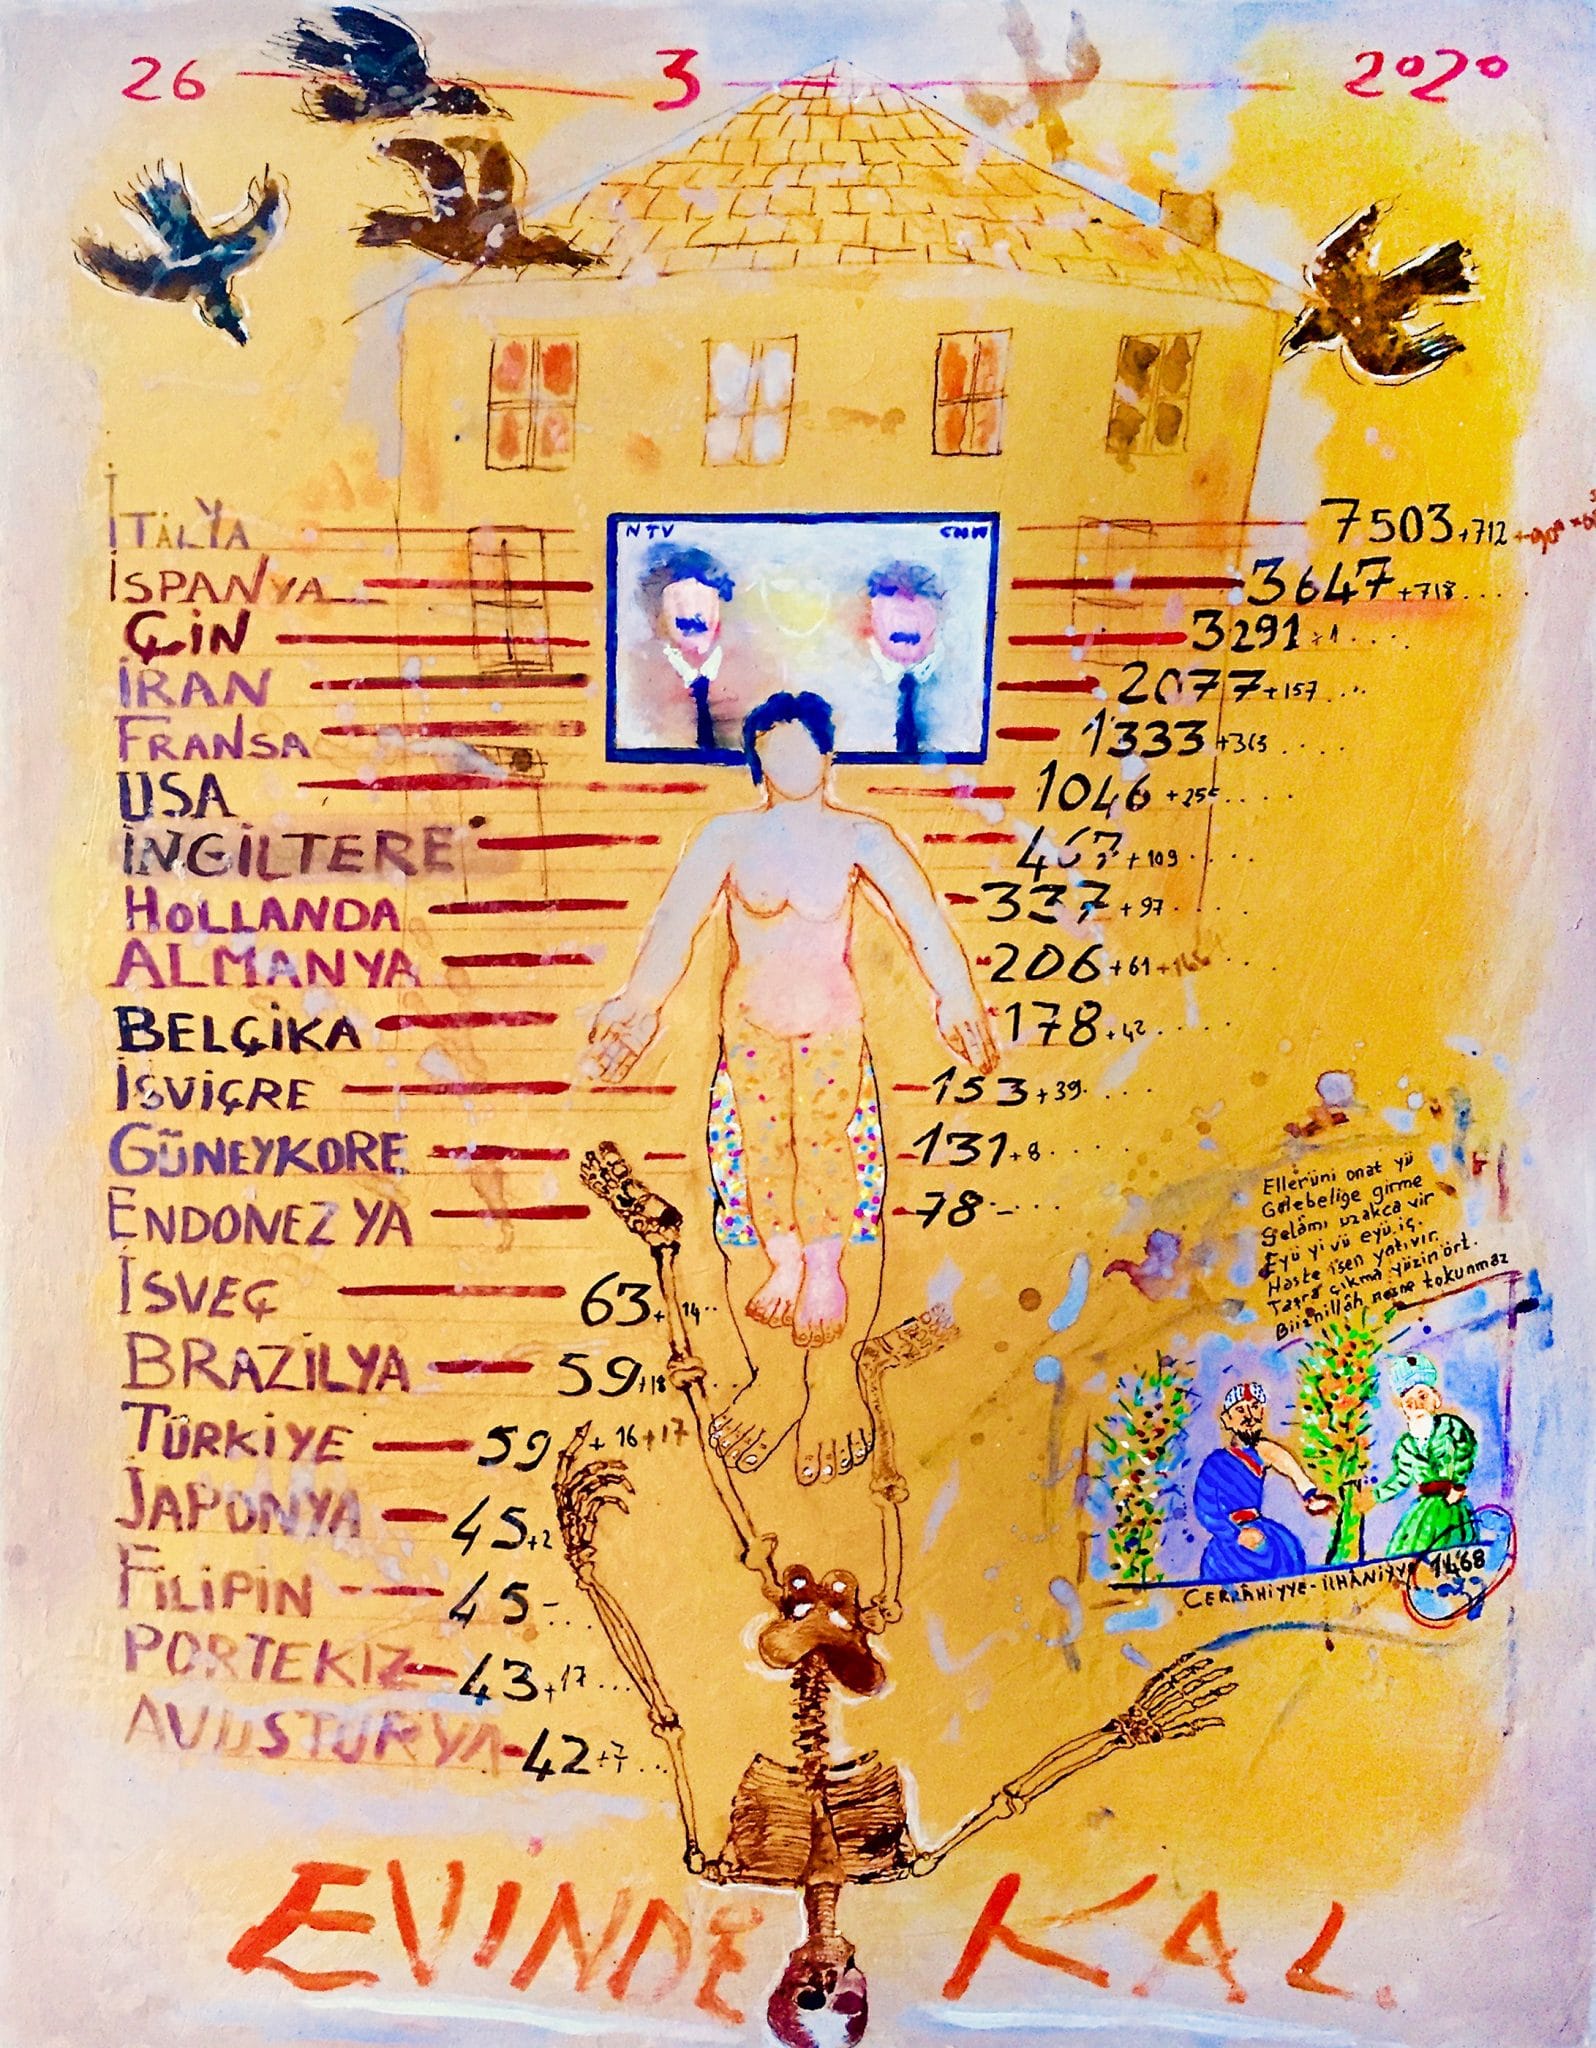 26 3 2020
NTV CNN
İTALYA 7503 +712 +900
İSPANYA 3647 +718....
ÇİN 3291 +1....
İRAN 2077 +157...
FRANSA 1333 +365....
USA 1046 +255....
İNGİLTERE 467 +109....
HOLLANDA 337 +97....
ALMANYA 206 +61
BELÇİKA 178 +42.....
İSVİÇRE 153 +39....
GÜNEYKORE 131 +8.....
ENDONEZYA 78 -...
İSVEÇ 63 + 14..
BRAZİLYA 59 +18...
TÜRKİYE 59 + 16 +17
JAPONYA 45 +2
FİLİPİN 45 -...
PORTEKİZ 43 +17...
AVUSTURYA 42 +7...
Ellerüni onat yü
Galebelige girme
Selâmı uzakca vir
Eyü yi vü eyü iç.
Haste isen yativir
Taşra çıkma yüzin ört.
Biiznillâh nesne tokunmaz
CERRÂHİYYE-İLHÂNİYYE 1468
EVİNDE KAL.